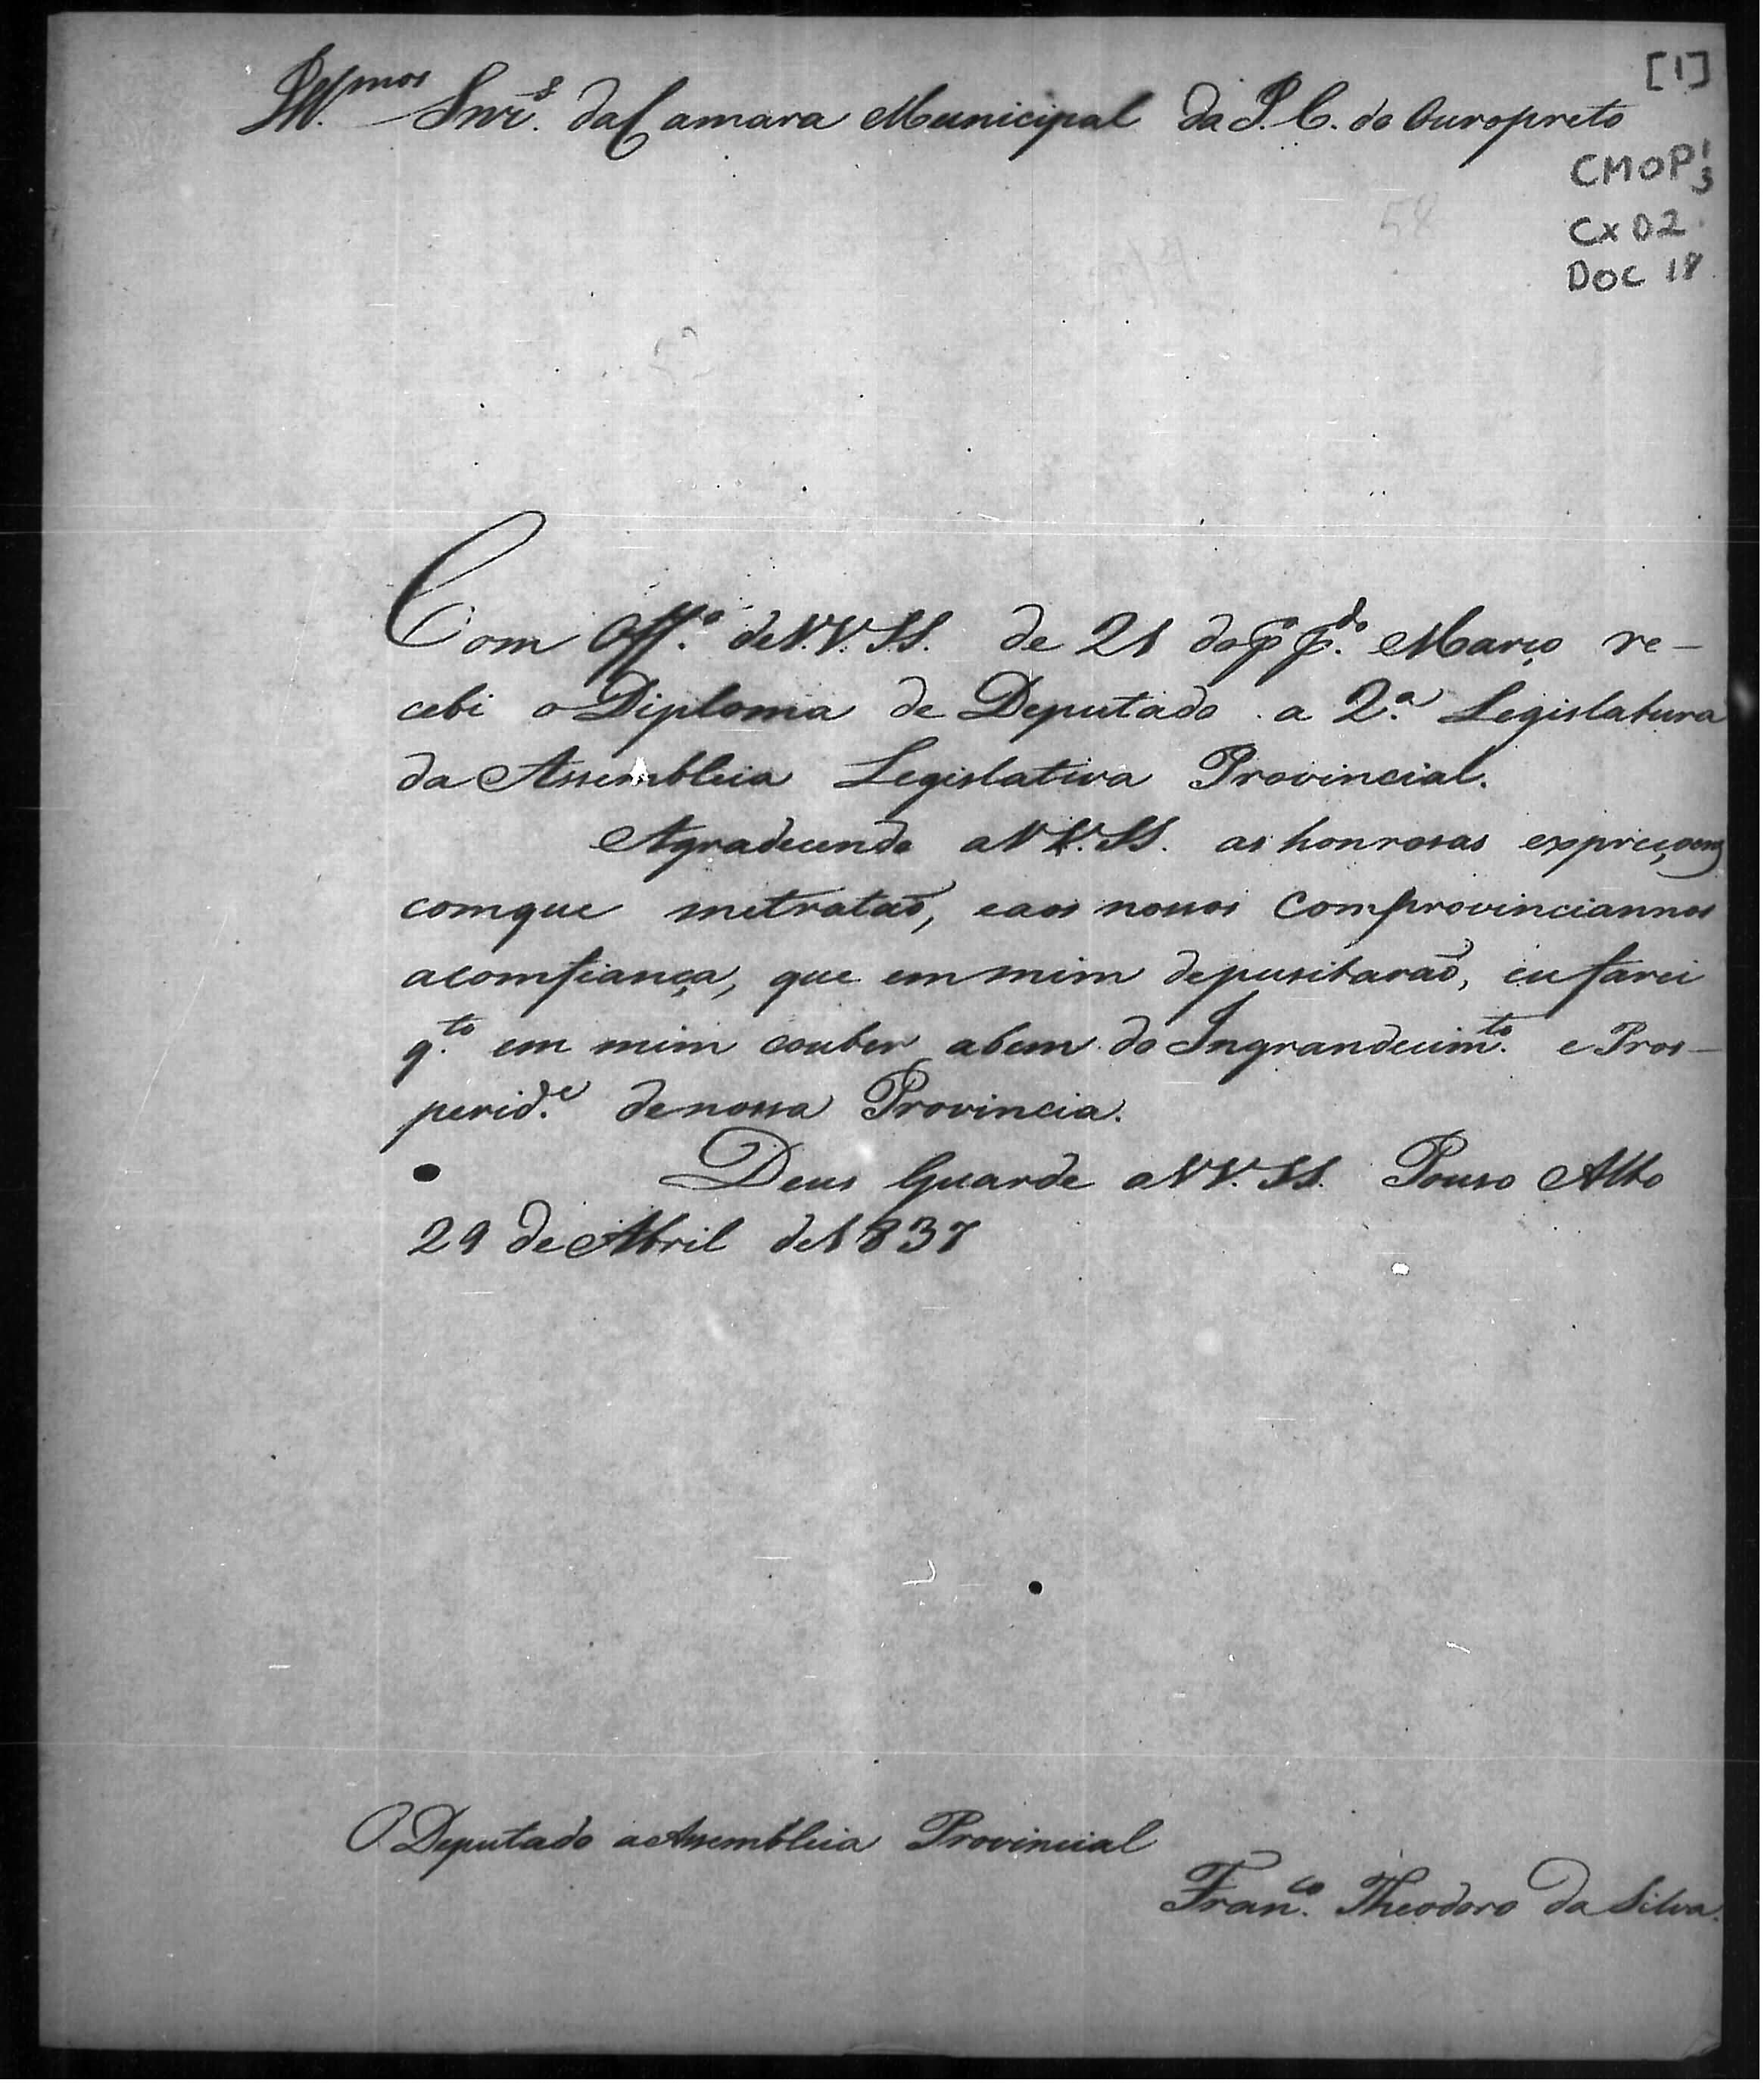 [1]
Illmos Snrs. da Camara Municipal da I. C. do Ouropreto
CMOP 1/3
CX 02
DOC 18
Com Off.o de V.V.S.S. de 21 do p p.do Março re-
cebi o Diploma de Deputado a 2.a Legislatura
da Assembleia Legislativa Provincial.
Agradecendo a V V.SS. as honrosas expreçoens
comque metratão, eaos nossos Comprovinciannos
acomfiança, que em mim depusitarão, eu farei
q.to em mim couber abem do Ingrandecim.to e Pros-
perid.e denossa Provincia.
Deus Guarde a V V. SS. Pouso Alto
29 de Abril de 1837
O Deputado a Assembleia Provincial
Fran.co Theodoro da Silva.